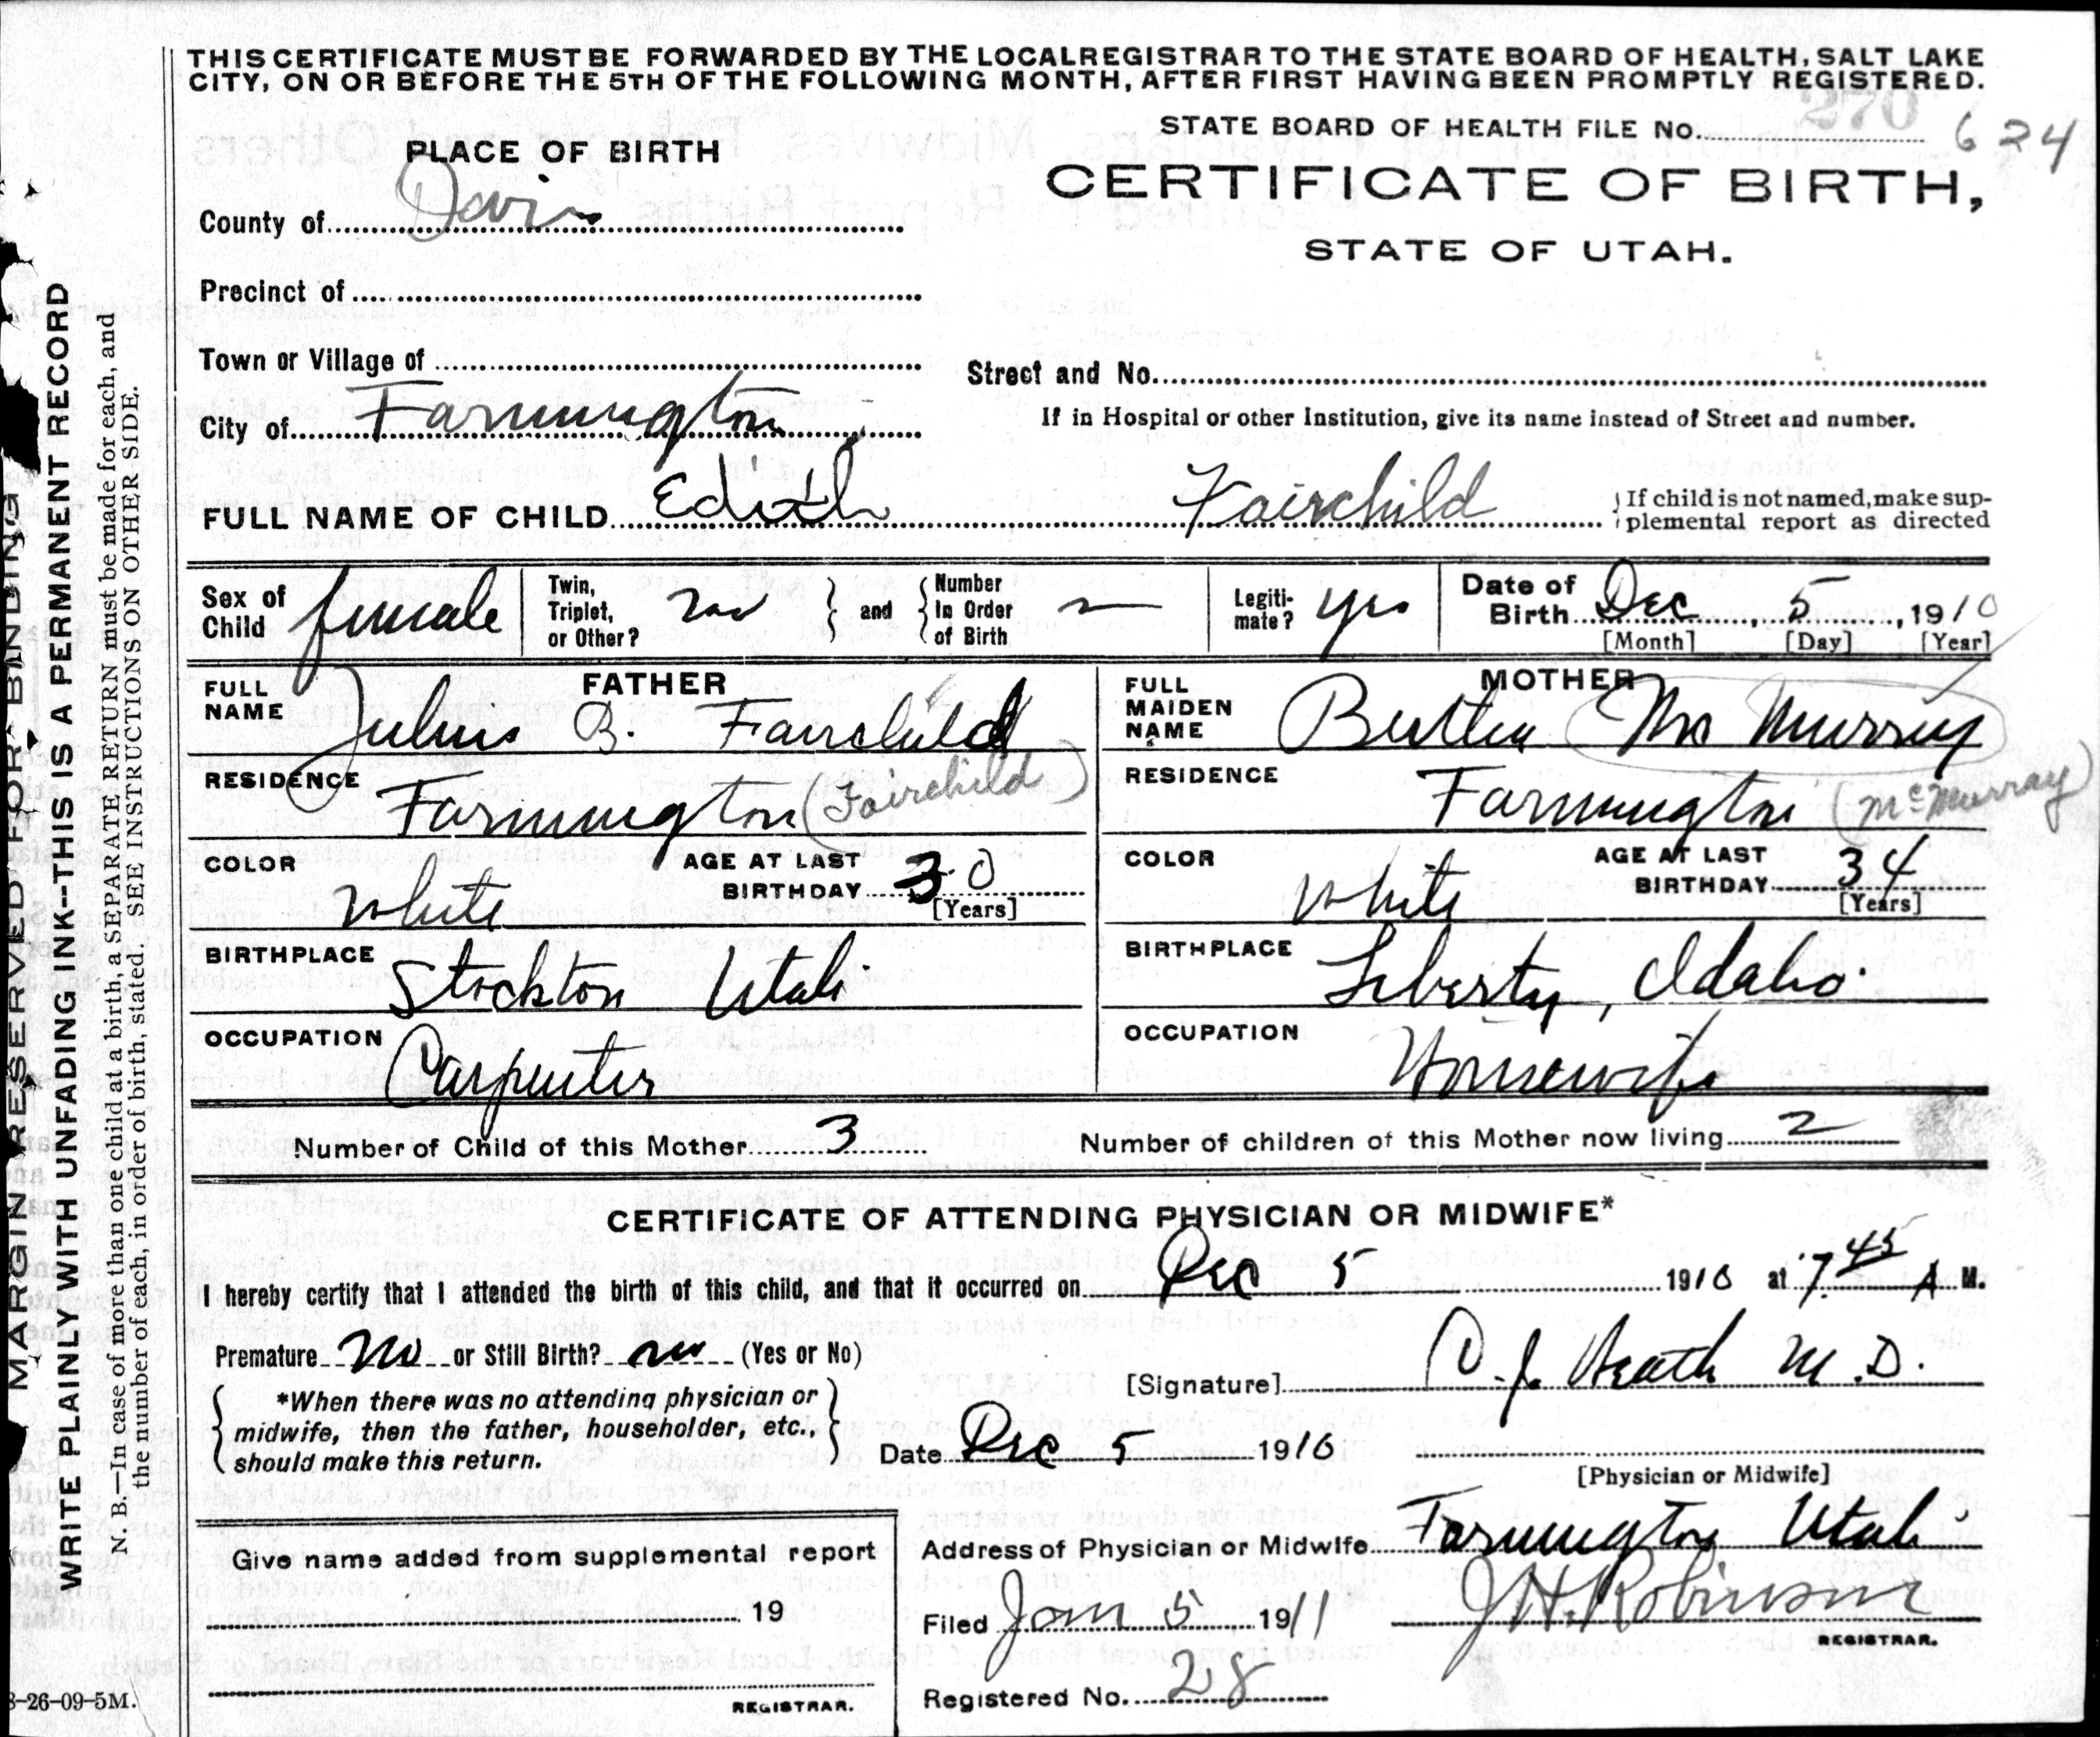 THIS CERTIFICATE MUST BE FORWARDED BY THE LOCAL REGISTRAR TO THE STATE BOARD OF HEALTH, SALT LAKE
CITY, ON OR BEFORE THE 5TH OF THE FOLLOWING MONTH, AFTER FIRST HAVING BEEN PROMPTLY REGISTERED.
270
STATE BOARD OF HEALTH FILE NO. 624
PLACE OF BIRTH
CERTIFICATE OF BIRTH,
STATE OF UTAH.
County of Davis
Precinct of
Town or Village of
Street and No.
City of Farmington
If in Hospital or other Institution, give its name instead of Street and number.
FULL NAME OF CHILD Edith Fairchild
If child is not named, make sup-
plemental report as directed
Sex of Child female
Twin, Triplet, or Other? no
and
Number In Order of Birth —
Legiti-mate? yes
Date of Birth Dec 5, 1910
[Month] [Day] [Year]
FATHER
FULL NAME Julius B. Fairchild
RESIDENCE Farmington (Fairchild)
COLOR white
AGE AT LAST BIRTHDAY 30
[Years]
BIRTHPLACE Stockton Utah
OCCUPATION Carpenter
MOTHER
FULL MAIDEN NAME Bertha Mc Murray
RESIDENCE Farmington (McMurray)
COLOR white
AGE AT LAST BIRTHDAY 34
[Years]
BIRTHPLACE Liberty, Idaho.
OCCUPATION Housewife
Number of Child of this Mother 3
Number of children of this Mother now living 2
CERTIFICATE OF ATTENDING PHYSICIAN OR MIDWIFE*
I hereby certify that I attended the birth of this child, and that it occurred on Dec 5 1910 at 7.45 A M.
Premature No or Still Birth? no (Yes or No)
*When there was no attending physician or
midwife, then the father, householder, etc.,
should make this return.
[Signature] C. J. Heath M.D.
Date Dec 5 1910
[Physician or Midwife]
Give name added from supplemental report
19
REGISTRAR.
Address of Physician or Midwife Farmington Utah
Filed Jan 5 1911 J. H. Robinson
REGISTRAR.
Registered No. 28
MARGIN RESERVED FOR BINDING
WRITE PLAINLY WITH UNFADING INK--THIS IS A PERMANENT RECORD
N. B.—In case of more than one child at a birth, a SEPARATE RETURN must be made for each, and
the number of each, in order of birth, stated. SEE INSTRUCTIONS ON OTHER SIDE.
8-26-09-5M.